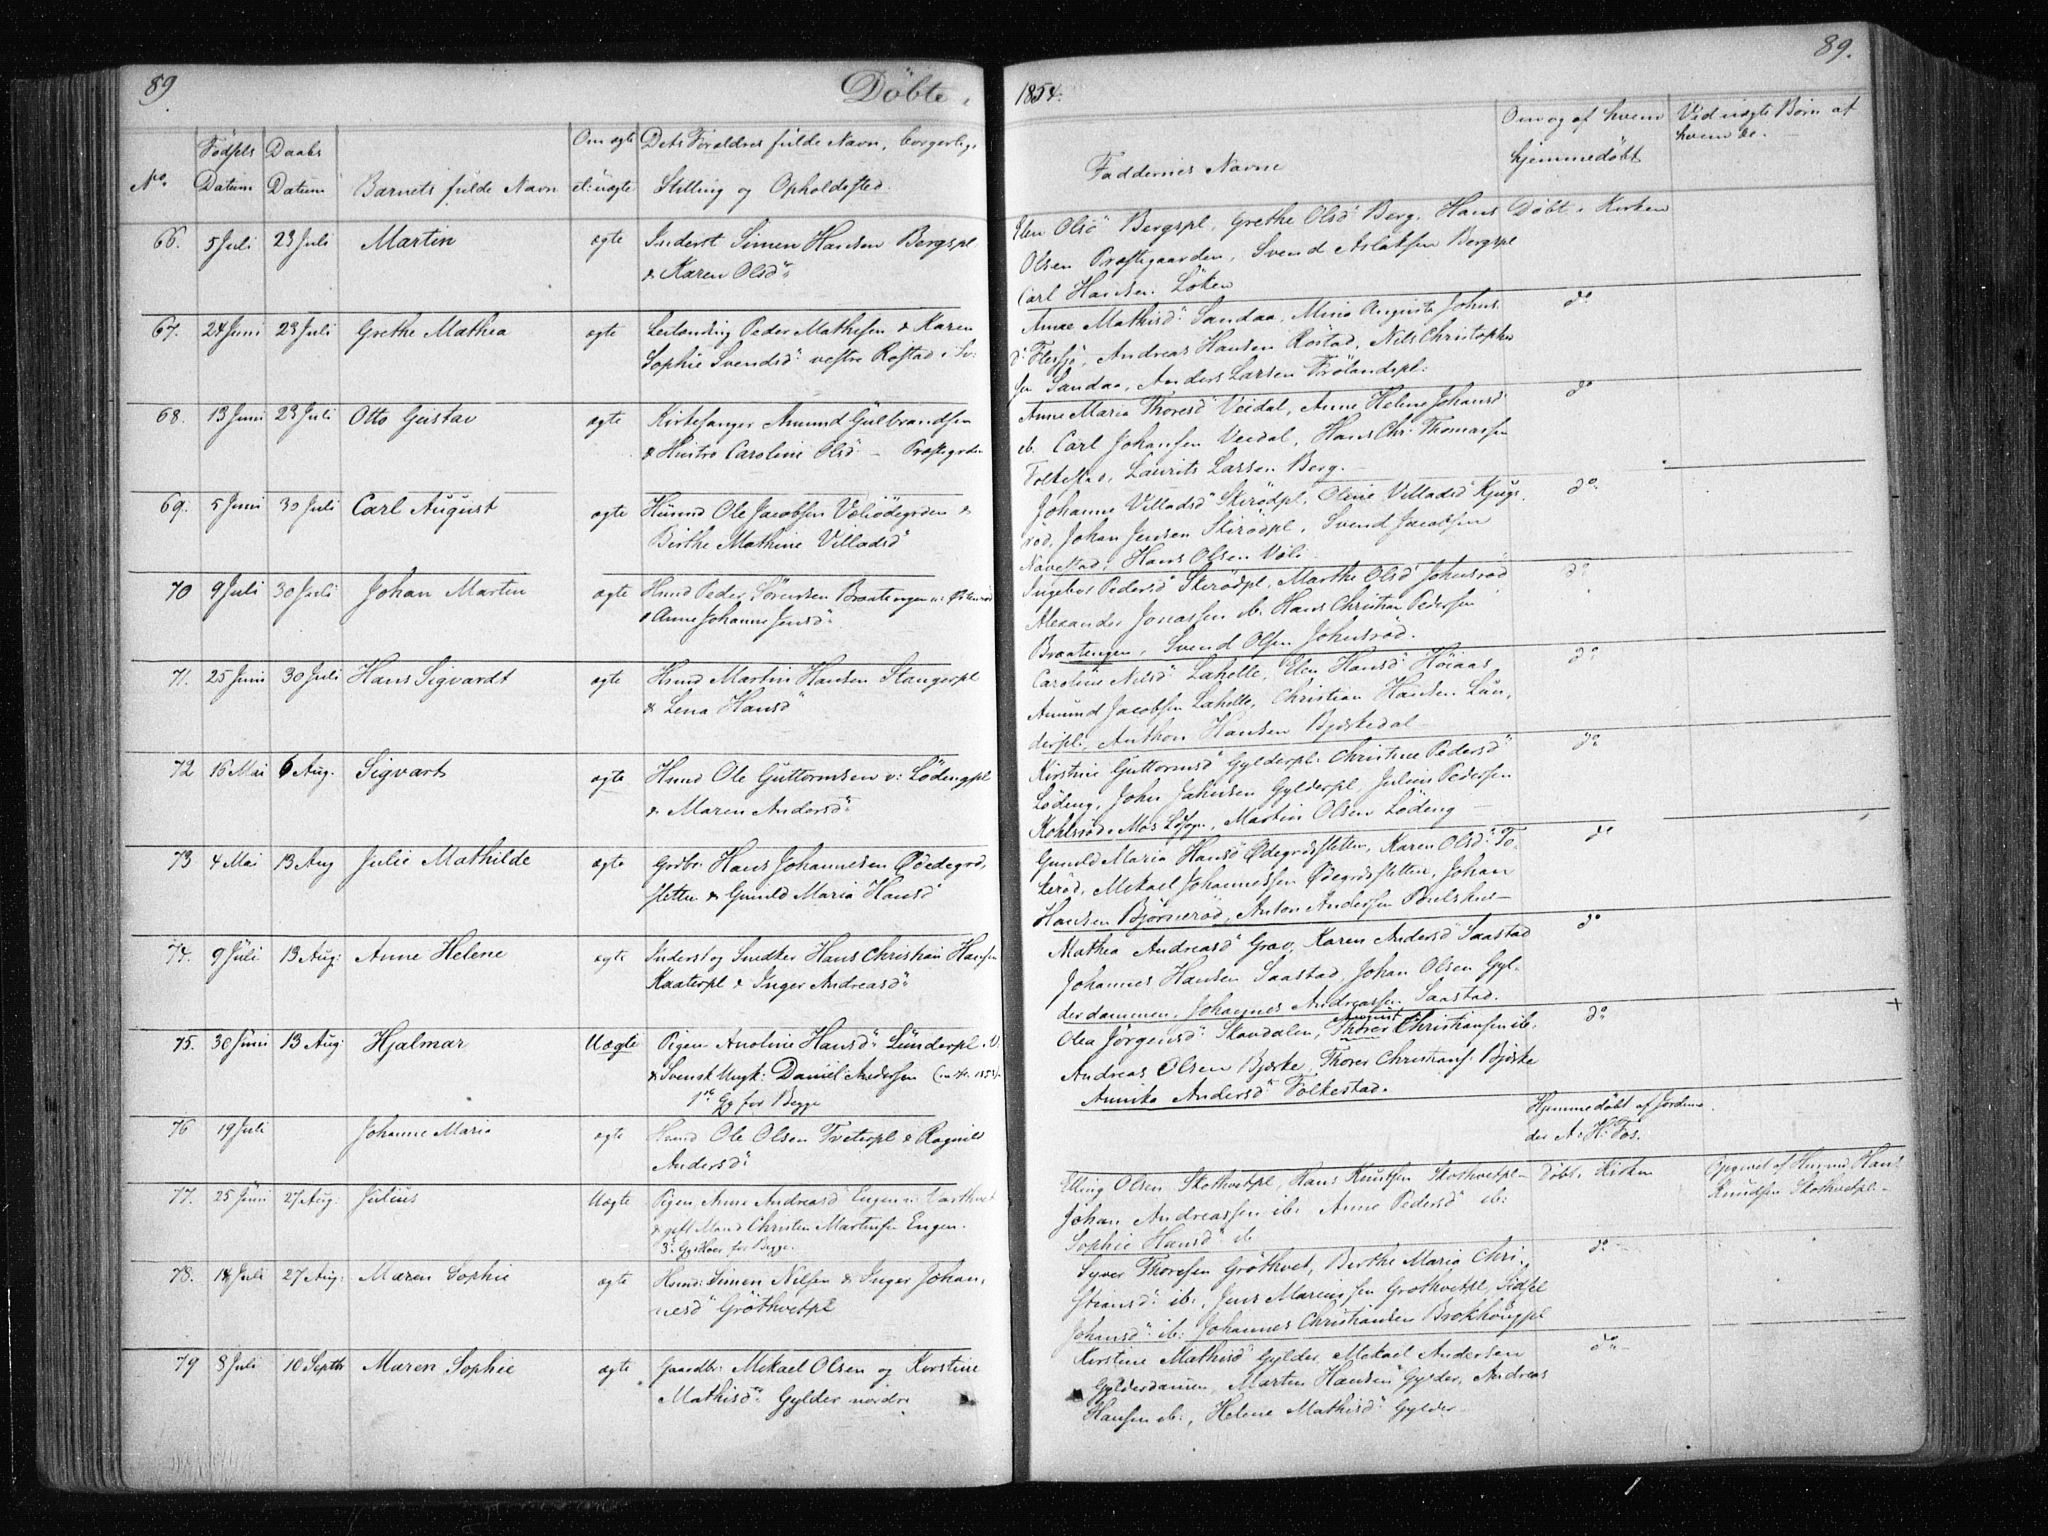 89
Döbte,
No.
Födsels Datum
Daabs Datum
Barnets fulde Navn
Om ægte el: uægte
Dets Foreldres fulde Navn, borgerlige
Stilling og Opholdssted.
66. 5 Juli 23 Juli Martin ægte Inderst Simen Hansen Bergspl
& Karen Olsd:
67. 24 Juni 23 Juli Grethe Mathea ægte Leilending Peder Mathesen & Karen
Sophie Svendsd: vestre Rostad i
68. 13 Juni 23 Juli Otto Gustav ægte Kirkesanger Amund Gulbrandsen
& Hustro Caroline Olsd: – Præstegrden
69. 5 Juni 30 Juli Carl August ægte Husmd Ole Jacobsen &
Birthe Mathine Villadsd:
70 9 Juli 30 Juli Johan Martin ægte Hsmd Peder Sörensen Braatengen
& Anne Johanne Jensd:
71. 25 Juni 30 Juli Hans Sigvardt ægte Hsmd Martin Hansen Stangerpl
& Lena Hansd:
72 16 Mai 6 Aug. Sigvart ægte Hsmd Ole Guttormsen v: Lödengpl
& Maren Andersd:
73 4 Mai 13 Aug Julie Mathilde ægte Grdbr Hans Johannesen Ödegrd,
sletten & Gunild Maria Hansd:
74. 9 Juli 13 Aug: Anne Helene ægte Inderst og Snedker Hans Christian Hansen
Kaaterpl & Inger Andreasd:
75. 30 Juni 13 Aug: Hjalmar Uægte Pigen Anoline Hansd: Lunderpl.
& Svensk Ungk: Daniel Andersen
1ste Gg for Begge
76 19 Juli Johanne Maria ægte Hsmd Ole Olsen Treterpl & Ragnild
Andersd:
77. 25 Juni 27 Aug: Julius Uægte Pigen Anne Andreasd: Engen
& gift Mand Christen Martinsen Engen.
for Begge.
78. 18 Juli 27 Aug: Maren Sophie ægte Hsmd: Simen Nilsen & Inger Johan,
nesd: Gröthvetpl
79 8 Juli 10 Septb Maren Sophie ægte Gaardbr: Mikael Olsen og Kirstine
Mathisd: Gylder nordre
1854.
89.
Faddernes Navne
Om og af hvem
hjemmedöbt
Ved uægte Börn af
hvem
Elen Olsd Bergspl, Grethe Olsd Berg, Hans Döbt i Kirken
Olsen Præstegaarden, Svend Aslaksen Bergspl
Carl Hansen Löken
Anne Mathisd: Sandaa, Mina Augusta Johns
d: Andreas Hansen Röstad, Nils Christophe
sen Sandaa, Anders Larsen Frölandspl: do
Anne Maria Thoresd Veidal, Anne Helene Johansd
ib. Carl Johansen Veidal, Hans Chr: Thomassen
Folkestad, Laurits Larsen Berg. do
Johanne Villadsd Skirödpl, Oline Villadsd
röd, Johan Jensen Skirödpl, Svend Jacobsen
Navestad, Hans Olsen do
Ingebor Pedersd Skirödpl, Marthe Olsd Johnsröd
Alexander Jonassen ib: Hans Christian Pedersen
Braatengen, Svend Olsen Johnsröd. do
Caroline Nilsd Lahelle, Elen Hansd Höiaas
Amund Jacobsen Lahelle, Christian Hansen Lun,
derpl, Anthon Hansen do
Kirstine Guttormsd Gylderpl. Christine Pedersd
Lödeng, John Jahnsen Gylderpl Julius Pedersen
Kohlsröd i Mos Martin Olsen Lödeng do
Gunild Maria Hansd Ödegrdsletten, Karen Olsd: To,
keröd, Mikael Johannessen Ödegrdsletten, Johan
Hansen Björneröd, Anton Andersen do
Mathea Andreasd Grav, Karen Andersd Saastad
Johannes Hansen Saastad, Johan Olsen Gyl,
derdammen, Johannes Andreassen Saastad. do
Olea Jörgensd: Skavdalen, August Thores Christiansen ib.
Andreas Olsen Bjerke, Thores Christians. Bjerke
Annika Andersd: Folkestad. do
+
Hjemmedöbt af Jordmo
der A: H: Fos.
Elling Olsen Skothvetpl, Hans Knutsen Skothvetpl– Döbt i Kirken Opgivet af Husmd Hans
Johan Andreassen ib: Anne Pedersd ib: Knudsen Skothvetpl–
Sophie Hansd: ib
Syver Thoresen Gröthvet, Berthe Maria Chri,
stiansd: ib:, Jens Mariussen Grothvetpl, Sidsel
Johansd: ib: Johannes Christiansen Brokhougpl do
Kirstine Mathisd Gylder, Mikael Andersen
Gylderdamen, Marten Hansen Gylder, Andreas
Hansen ib:, Helene Mathisd: Gylder do